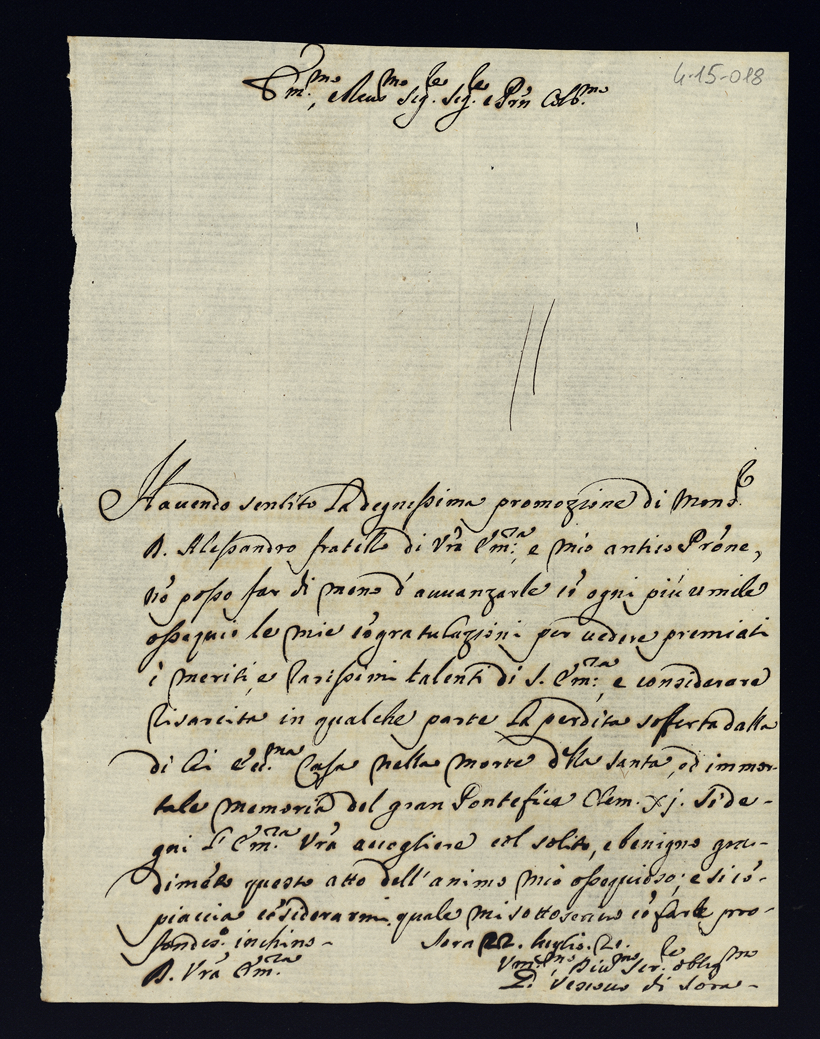 4-15-018
Em.mo, e Reu.mo Sig.re Sig.re e Prñ Colō.mo
Hauendo sentito la degnissima promozione di Mons.r
D. Alessandro fratello di Vrã Em.za, e mio antico Prõne,
nõ posso far di meno d'auuanzarle cõ ogni più umile
ossequio le mie cõgratulazioni per uedere premiati
i meriti, e rarissimi talenti di S. Em.za, e considerare
risarcita in qualche parte la perdita sofferta dalla
di lei Ecc.ma Casa nella morte d'lla santa, ed immor-
tale memoria del gran Pontefice Clem. xj. Si de-
gni l'Em.za Vrã accogliere col solito, e benigno gra-
dimẽto questo atto dell'animo mio ossequioso; e si cõ-
piaccia cõsiderarmi quale mi sottoscriuo cõ farle pro-
fondis.o inchino-
Sora 22. luglio. 21.
D. Vrã Em.za
Vm.mo, Diu.mo Ser.re oblig.mo
Vescouo di Sora-